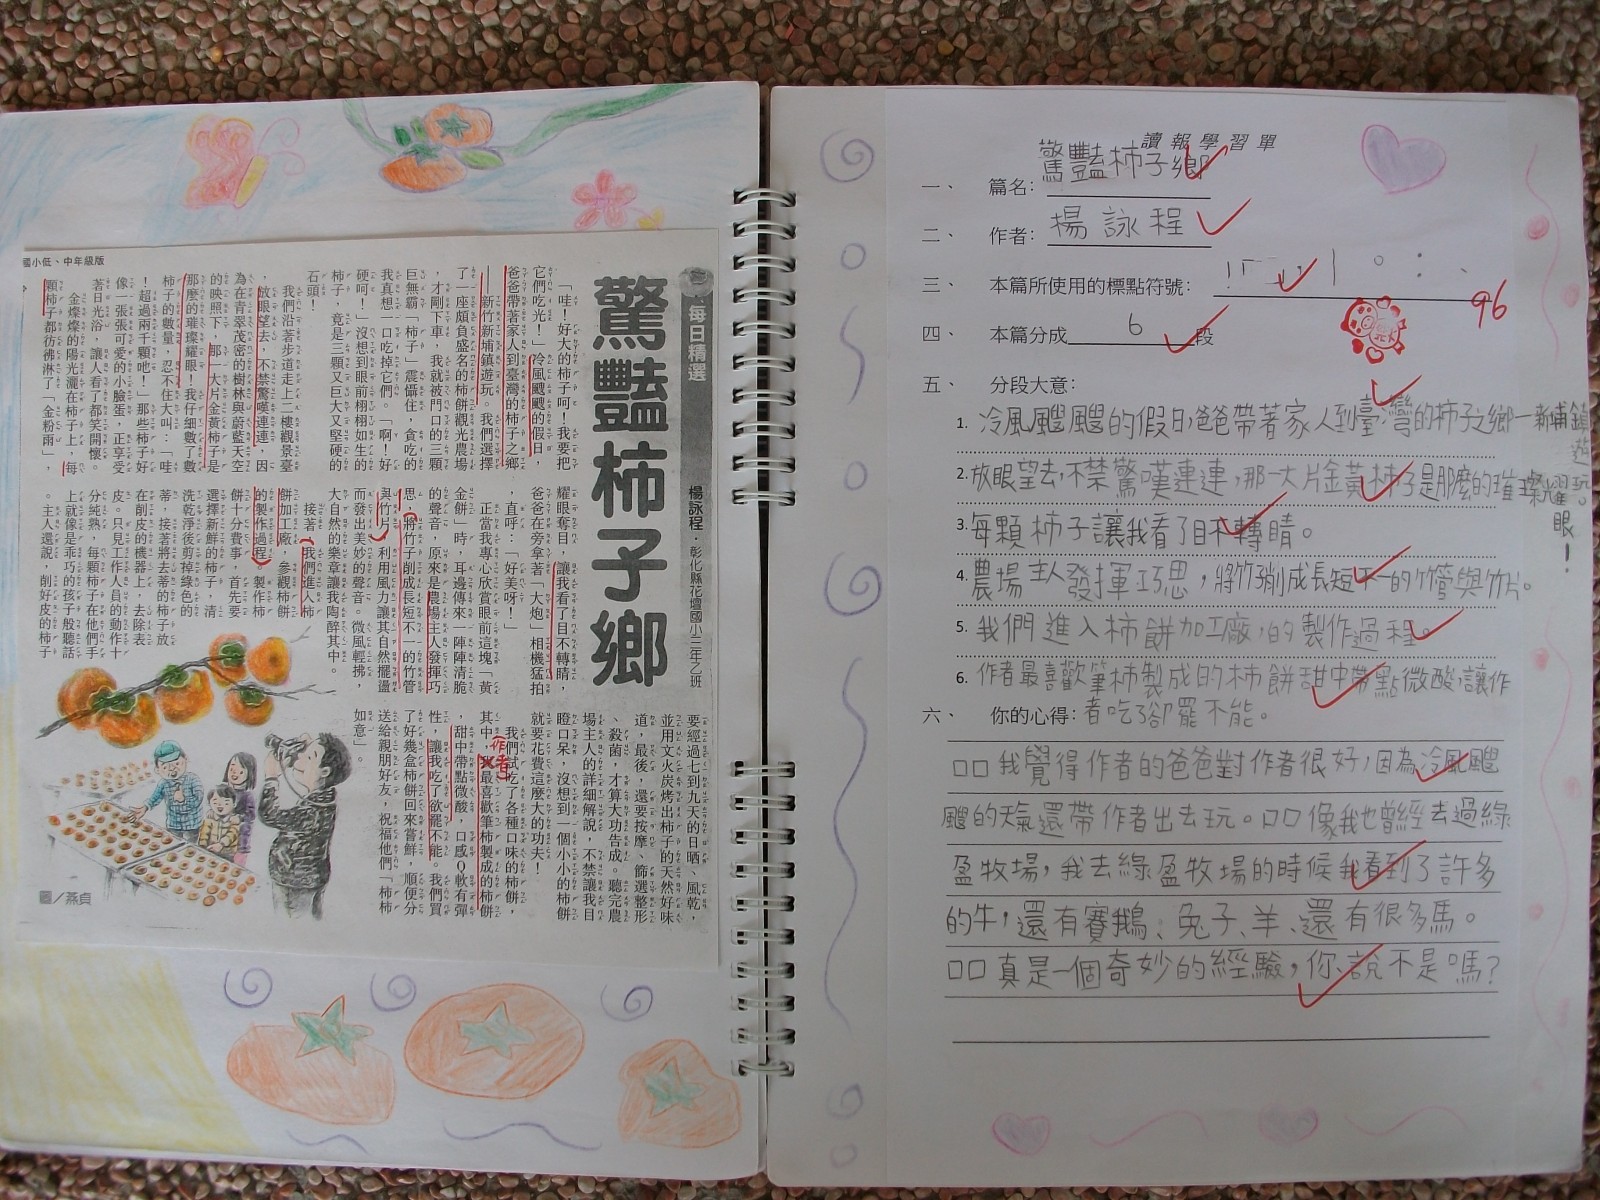 國小低、中年級版
每日精選
驚豔柿子鄉
楊詠程・彰化縣花壇國小三年乙班
「哇!好大的柿子呵!我要把
它們吃光!」冷風颼颼的假日,
爸爸帶著家人到臺灣的柿子之鄉
——新竹新埔鎮遊玩。我們選擇
了一座頗負盛名的柿餅觀光農場
,才剛下車,我就被門口的三顆
巨無霸「柿子」震懾住,貪吃的
我真想一口吃掉它們。「啊!好
硬呵!」沒想到眼前栩栩如生的
柿子,竟是三顆又巨大又堅硬的
石頭!
我們沿著步道走上二樓觀景臺
,放眼望去,不禁驚嘆連連,因
為在青翠茂密的樹林與蔚藍天空
的映照下,那一大片金黃柿子是
那麼的璀璨耀眼!我仔細數了數
柿子的數量,忍不住大叫:「哇
!超過兩千顆吔!」那些柿子好
像一張張可愛的小臉蛋,正享受
著日光浴,讓人看了都笑開懷。
金燦燦的陽光灑在柿子上,每
顆柿子都彷彿淋了「金粉雨」,
耀眼奪目,讓我看了目不轉睛,
爸爸在旁拿著「大炮」相機猛拍
,直呼:「好美呀!」
正當我專心欣賞眼前這塊「黃
金餅」時,耳邊傳來一陣陣清脆
的聲音,原來是農場主人發揮巧
思,將竹子削成長短不一的竹管
與竹片,利用風力讓其自然擺盪
而發出美妙的聲音。微風輕拂,
大自然的樂章讓我陶醉其中。
接著,我們進入柿
餅加工廠,參觀柿餅
的製作過程。製作柿
餅十分費事,首先要
選擇新鮮的柿子,清
洗乾淨後剪掉綠色的
蒂,接著將去蒂的柿子放
在削皮的機器上,去除表
皮。只見工作人員的動作十
分純熟,每顆柿子在他們手
上就像是乖巧的孩子般聽話
。主人還說,削好皮的柿子
要經過七到九天的日晒、風乾,
並用文火炭烤出柿子的天然好味
道,最後,還要按摩、篩選整形
、殺菌,才算大功告成。聽完農
場主人的詳細解說,不禁讓我
瞪口呆,沒想到一個小小的柿餅
就要花費這麼大的功夫!
我們試吃了各種口味的柿餅,
其中,我最喜歡筆柿製成的柿餅
(作者)
,甜中帶點微酸,口感Q軟有彈
性,讓我吃了欲罷不能。我們買
了好幾盒柿餅回來嘗鮮,順便分
送給親朋好友,祝福他們「柿柿
如意」。
圖/燕貞
讀報學習單
一、 篇名:驚豔柿子鄉
二、 作者:楊詠程
三、 本篇所使用的標點符號:
96
四、 本篇分成6段
五、 分段大意:
1. 冷風颼颼的假日,爸爸帶著家人到臺灣的柿子之鄉—新埔鎮遊玩。
2. 放眼望去,不禁驚嘆連連,那一大片金黃柿子是那麼的璀璨耀眼!
3. 每顆柿子讓我看了目不轉睛。
4. 農場主人發揮巧思,將竹子削成長短不一的竹管與竹片。
5. 我們進入柿餅加工廠,的製作過程。
6. 作者最喜歡筆柿製成的柿餅甜中帶點微酸,讓作
者吃了卻罷不能。
六、 你的心得:
□□我覺得作者的爸爸對作者很好,因為冷風颼
颼的天氣還帶作者出去玩。□□像我也曾經去過綠
盈牧場,我去綠盈牧場的時候我看到了許多
的牛,還有賽鵝、兔子、羊、還有很多馬。
□□真是一個奇妙的經驗,你說不是嗎?